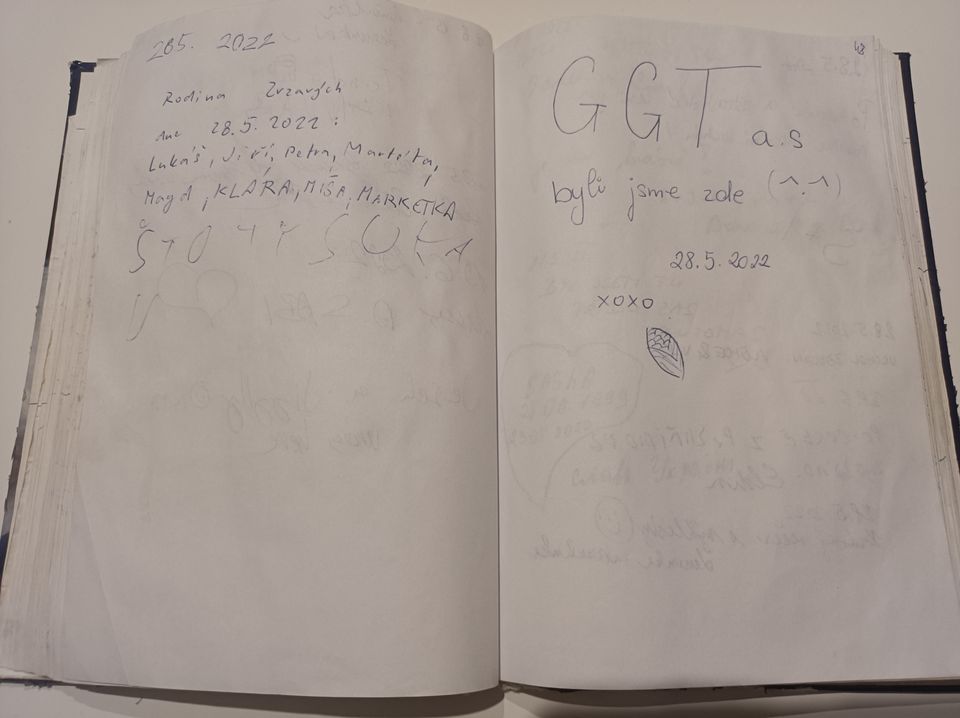 28.5. 2022
Rodina Zrzavých
dne 28.5.2022:
Lukáš, Jiří, Petra, Markéta,
Magd, KLÁRA, MÍŠA, MARKETKA
48
GGT a.s
byli jsme zde (^.^)
28.5.2022
xoxo